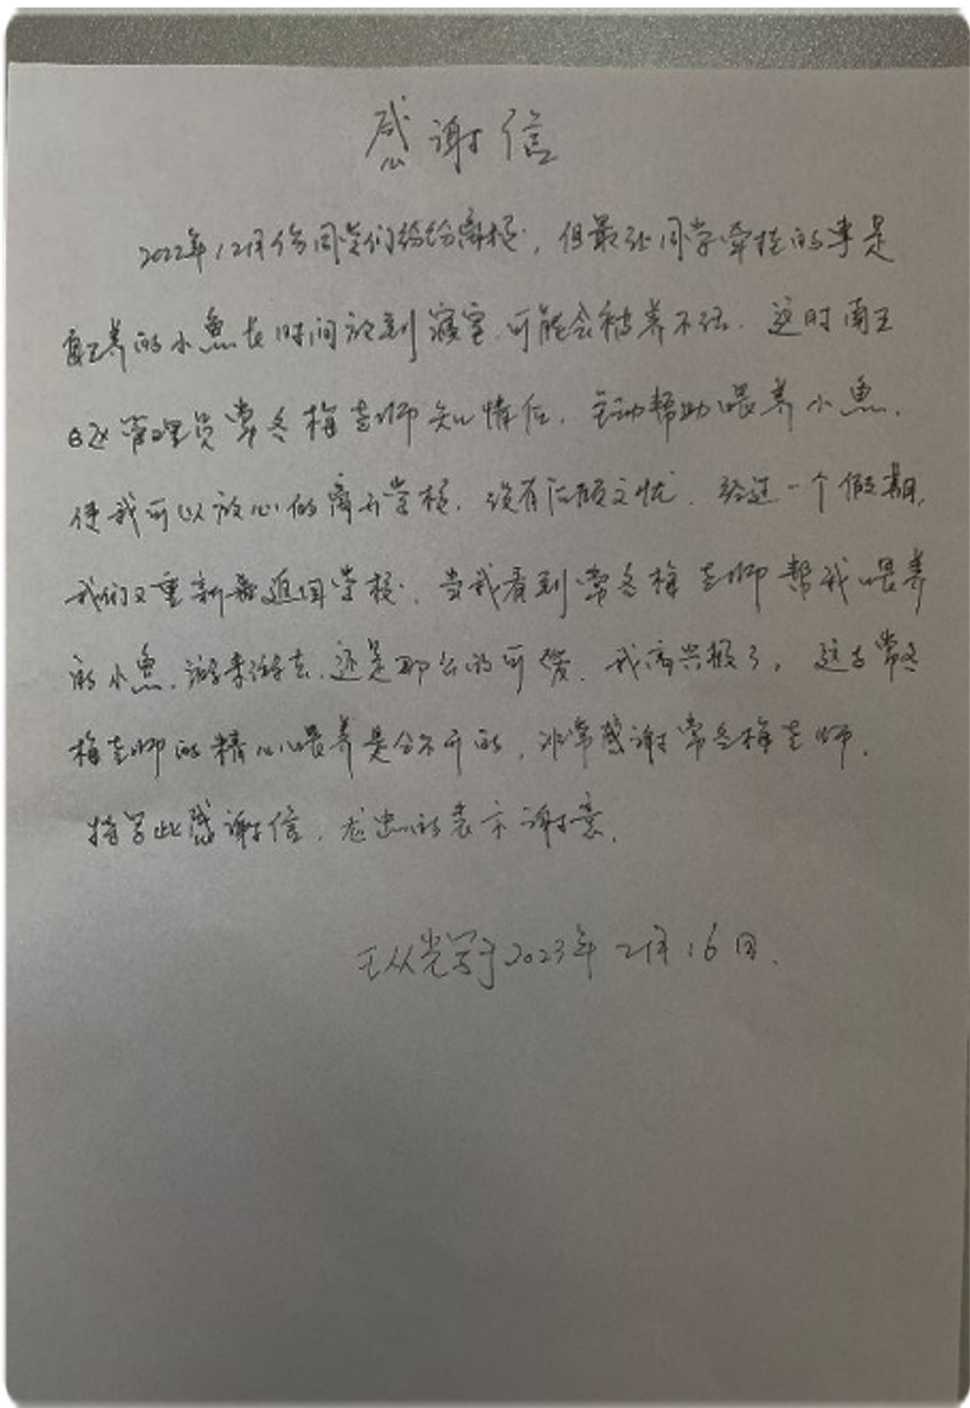 感谢信
2022年12月份同学们纷纷离校，但最让同学牵挂的事是
自己养的小鱼长时间放到寝室，可能会被养不活。这时南五
B区管理员常冬梅老师知道情后，主动帮助喂养小鱼，
使我可以放心的离开学校，没有后顾之忧。经过一个假期，
我们又重新返回学校，当我看到常冬梅老师帮我喂养
的小鱼，游来游去，还是那么的可爱，我高兴极了，这与常冬
梅老师的精心喂养是分不开的，非常感谢常冬梅老师。
特写此感谢信，忠的表示谢意。
王从光写于2023年2月16日.